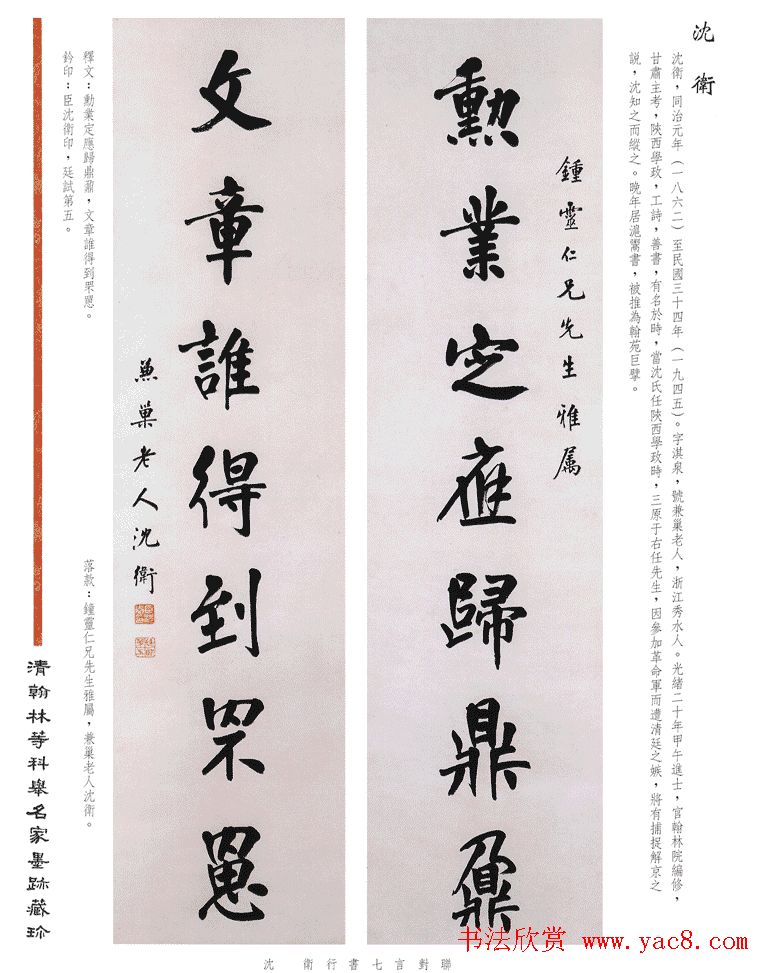 沈衛
沈衛，同治元年（一八六二）至民國三十四年（一九四五）。字淇泉，號兼巢老人，浙江秀水人。光緒二十年甲午進士，官翰林院編修，
甘肅主考，陝西學政，工詩，善書，有名於時，當沈氏任陝西學政時，三原于右任先生，因參加革命軍而遭清廷之嫉，將有捕捉解京之
説，沈知之而縱之。晚年居滬鬻書，被推為翰苑巨擘。
鍾靈仁兄先生雅属
勲業定應歸鼎鼐
文章誰得到罘罳
兼巢老人沈衛
釋文：勳業定應歸鼎鼐，文章誰得到罘罳。
鈐印：臣沈衛印，廷試第五。
落款：鐘靈仁兄先生雅屬，兼巢老人沈衛。
清翰林等科舉名家墨跡藏珍
沈衛行書七言對聯
书法欣赏 www.yac8.com